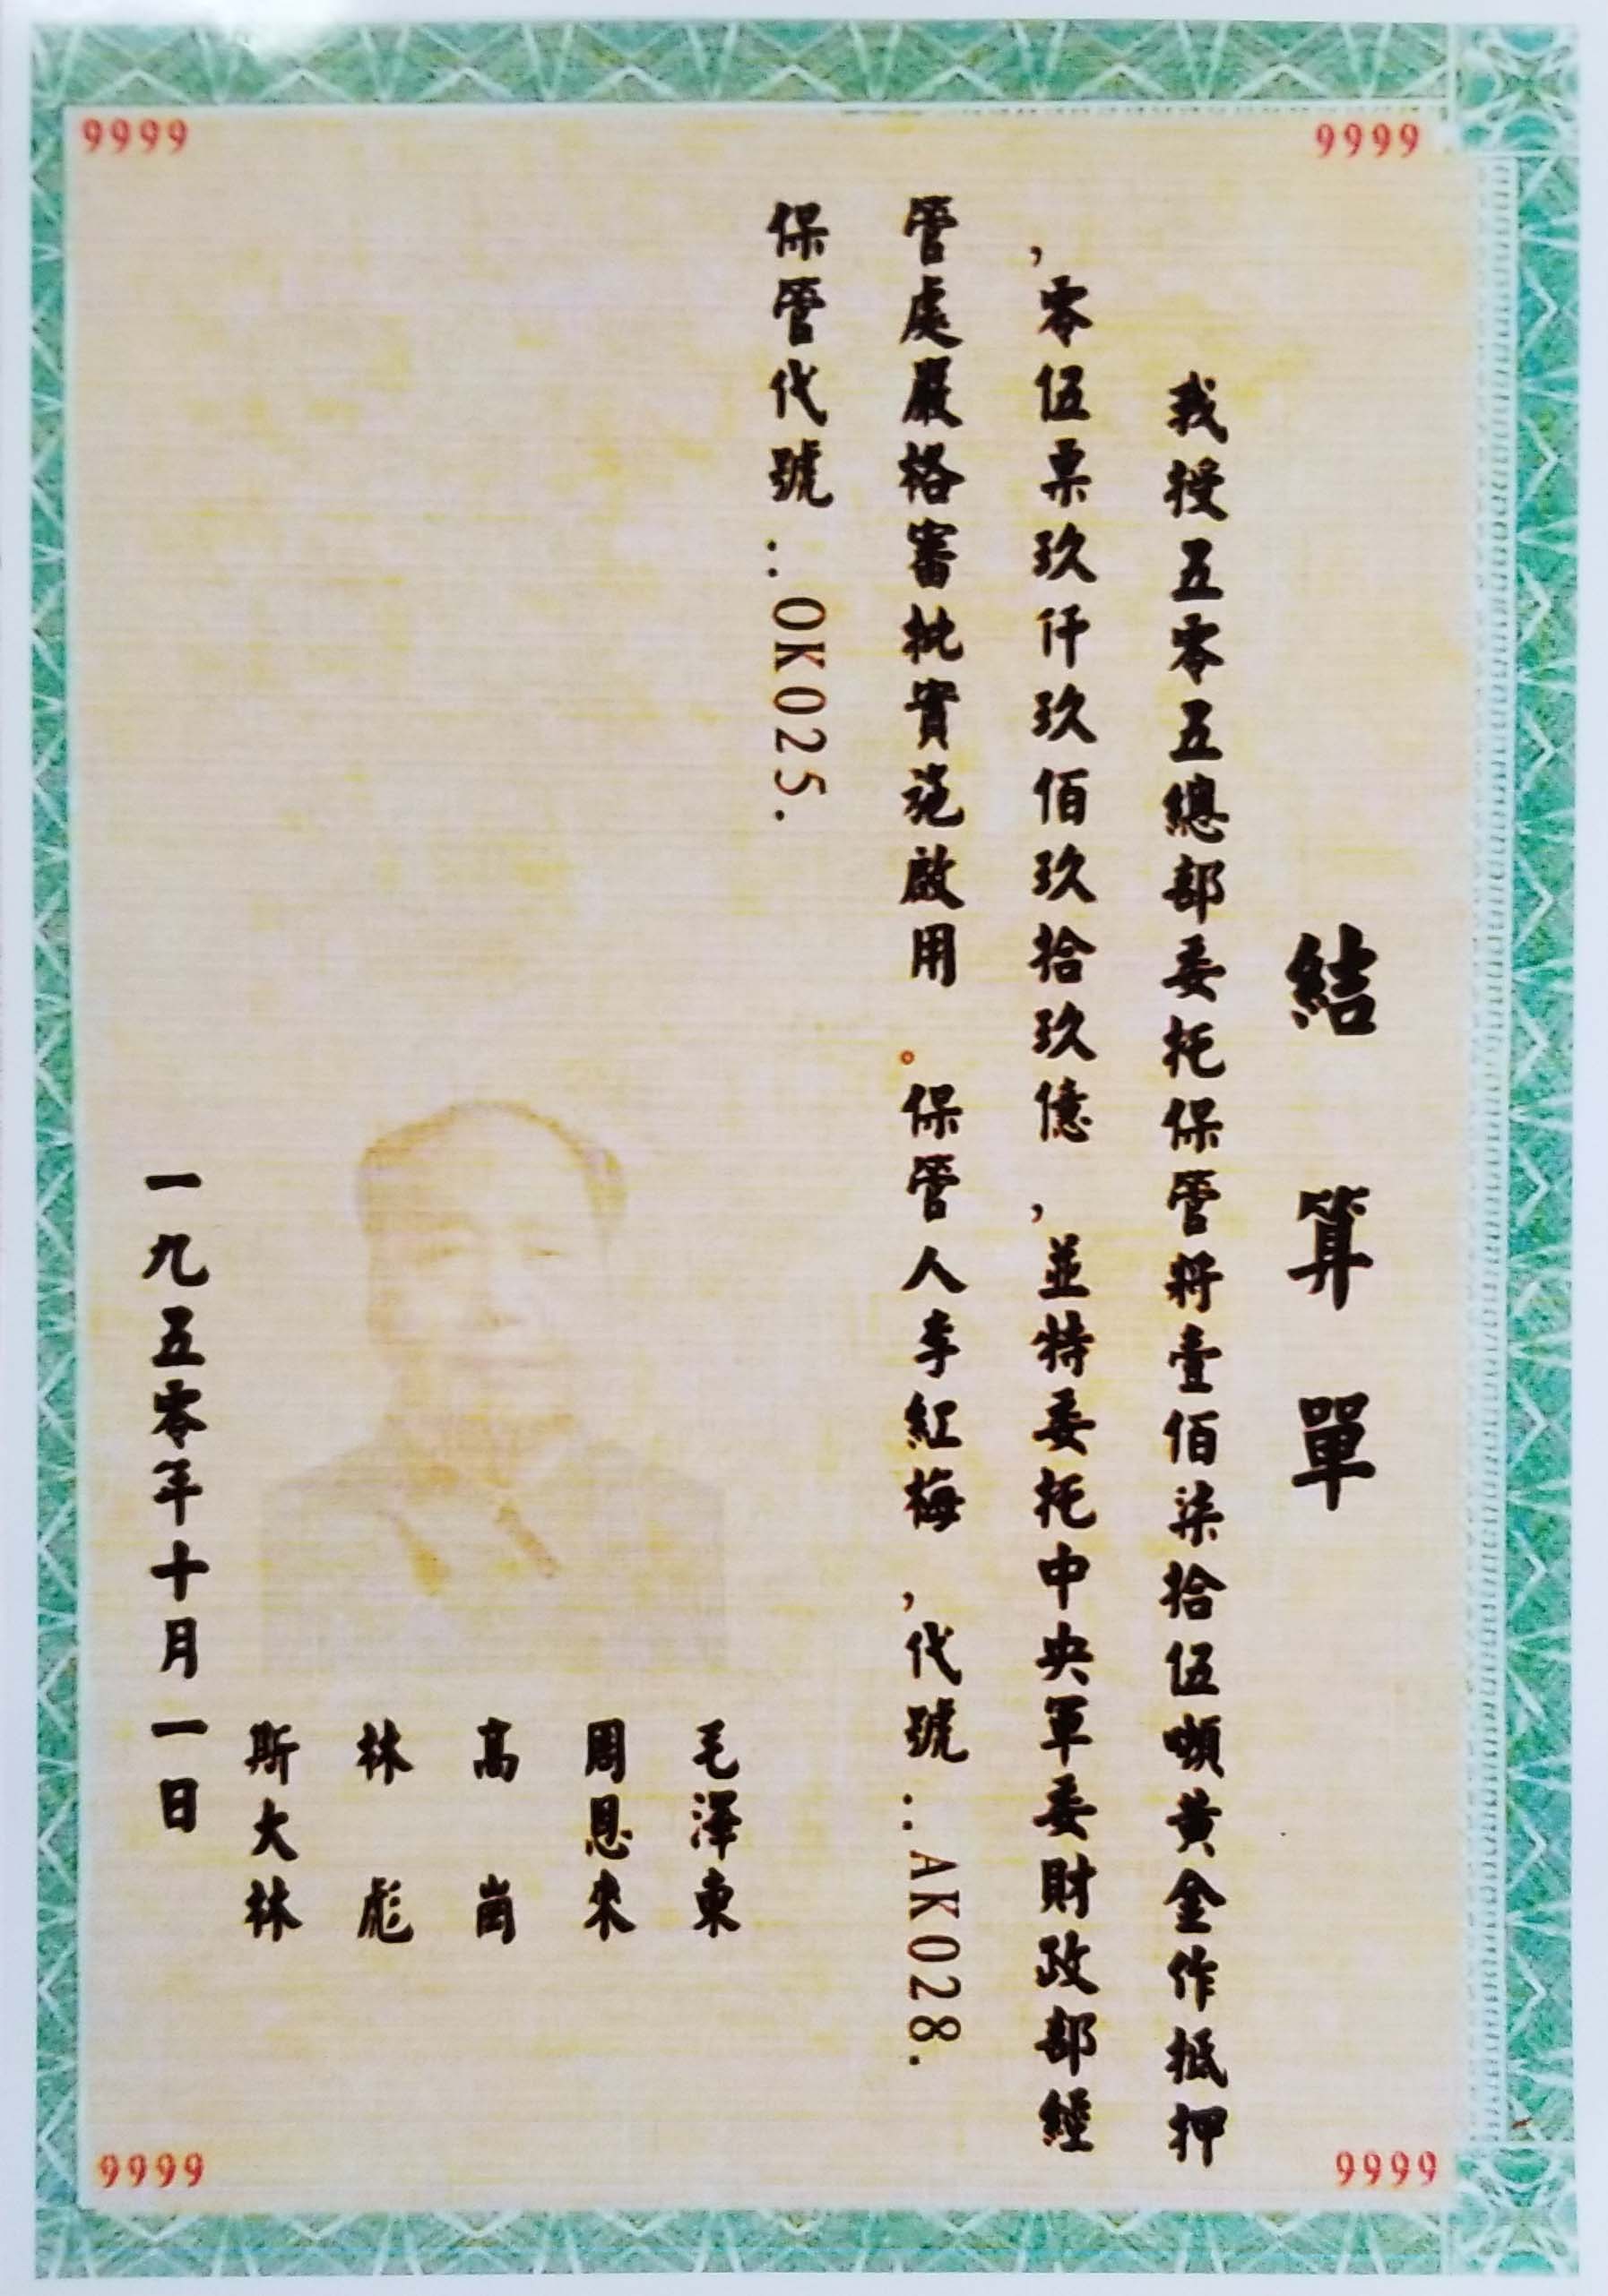 9999
9999
結算單
我授五零五總部委托保管將壹佰柒拾伍噸黃金作抵押
，零伍票玖仟玖佰玖拾玖億，並特委托中央軍委財政部經
管處嚴格審批實施啟用。保管人李紅梅，代號：AK028.
保管代號：OK025.
毛澤東
周恩來
高崗
林彪
斯大林
一九五零年十月一日
9999
9999